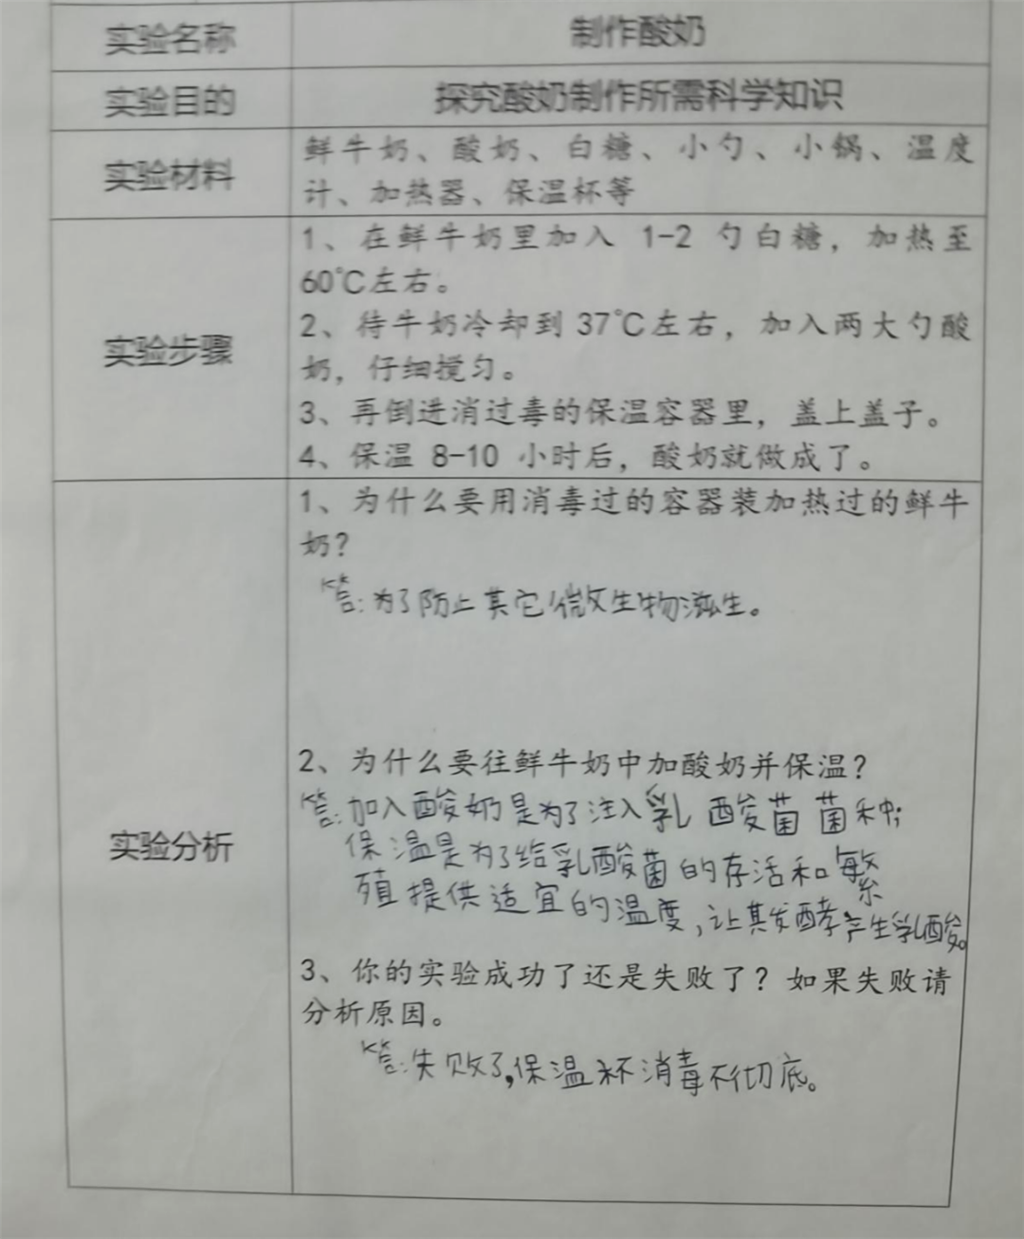 实验名称 制作酸奶
实验目的 探究酸奶制作所需科学知识
实验材料
鲜牛奶、酸奶、白糖、小勺、小锅、温度
计、加热器、保温杯等
实验步骤
1、在鲜牛奶里加入 1-2 勺白糖，加热至
60℃左右。
2、待牛奶冷却到 37℃左右，加入两大勺酸
奶，仔细搅匀。
3、再倒进消过毒的保温容器里，盖上盖子。
4、保温 8-10 小时后，酸奶就做成了。
实验分析
1、为什么要用消毒过的容器装加热过的鲜牛
奶？
答:为了防止其它微生物滋生。
2、为什么要往鲜牛奶中加酸奶并保温？
答:加入酸奶是为了注入乳酸菌菌种;
保温是为了给乳酸菌的存活和繁
殖提供适宜的温度,让其发酵产生乳酸。
3、你的实验成功了还是失败了？如果失败请
分析原因。
答:失败了,保温杯消毒不彻底。